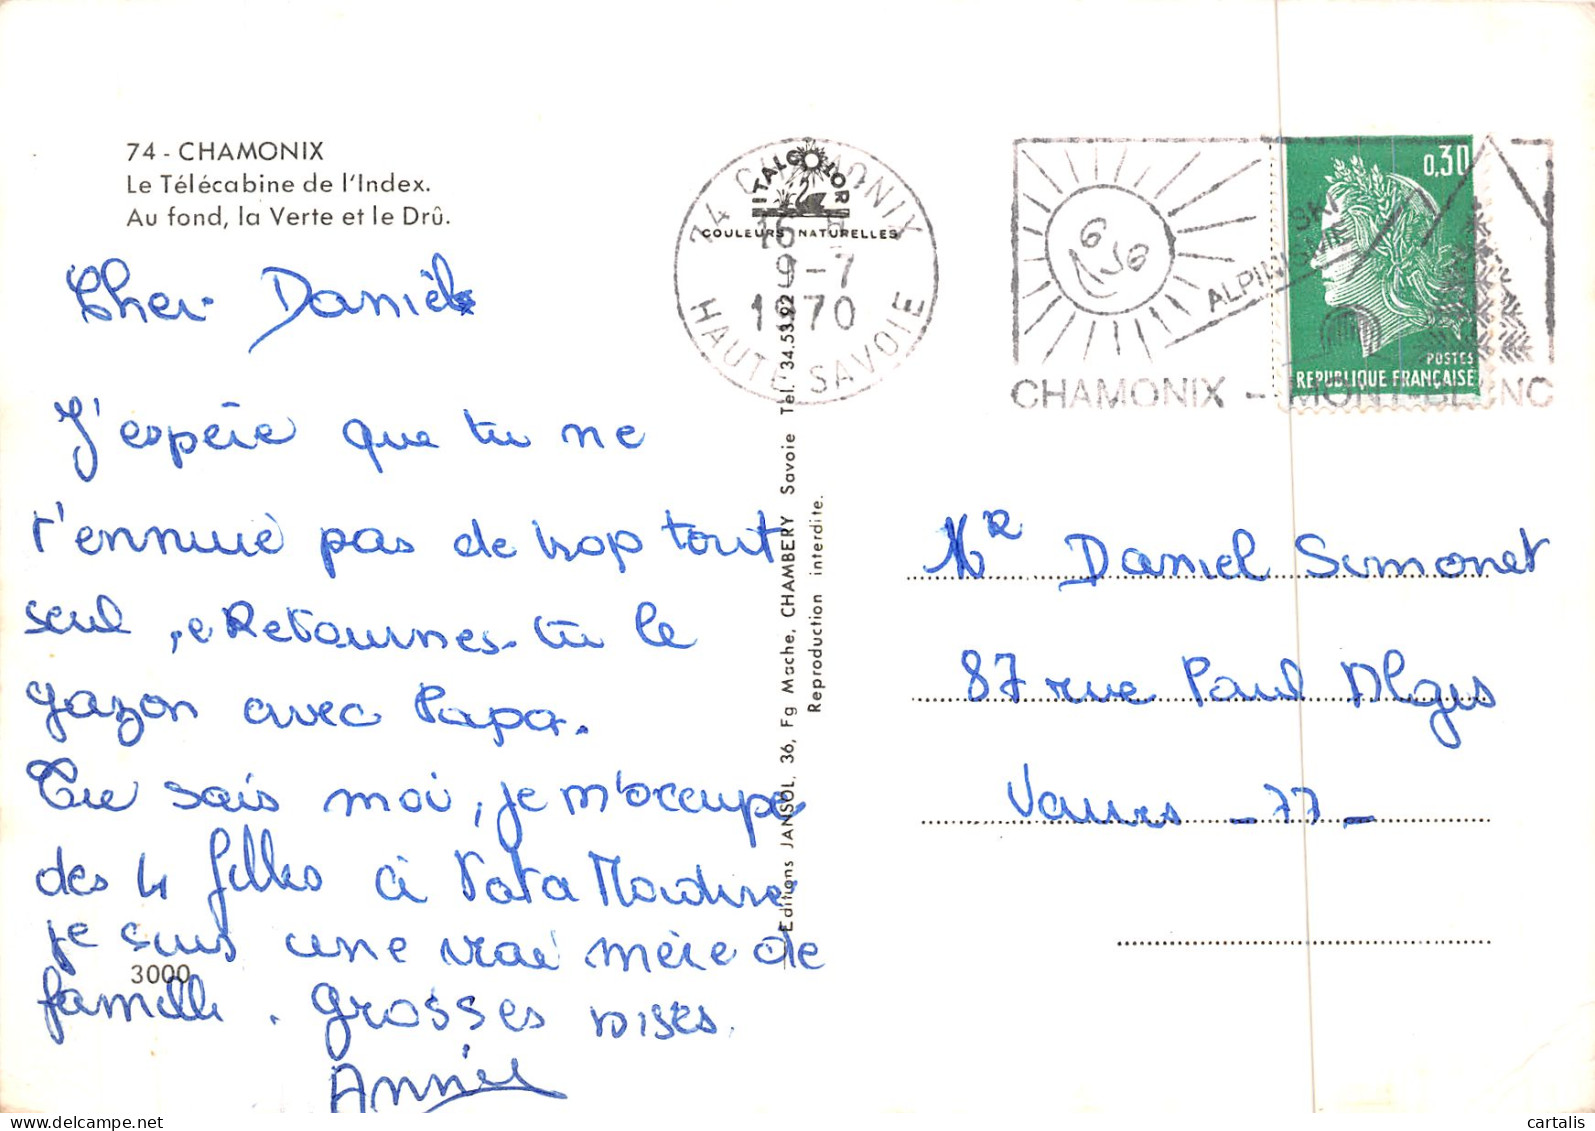 74 - CHAMONIX
Le Télécabine de l'Index.
Au fond, la Verte et le Drû.
Cher Daniel
J'espère que tu ne
t'ennuie pas de trop tout
seul, Retournes-tu le
gazon avec Papa.
Tu sais moi, je m'occupe
des 4 filles à
je suis une vrai mère de
famille. grosses bises.
Annie
3000
ITALCOLOR
COULEURS NATURELLES
74 CHAMONIX
9-7
1970
HAUTE SAVOIE
Editions JANSOL, 36, Fg Mache, CHAMBERY Savoie Tél. 34.53.92
Reproduction interdite.
SKI
ALPINISME
CHAMONIX - MONT-BLANC
0,30
POSTES
REPUBLIQUE FRANÇAISE
Mr Daniel Simonet
87 rue Paul Algis
Vaurs - 77 -
cartalis